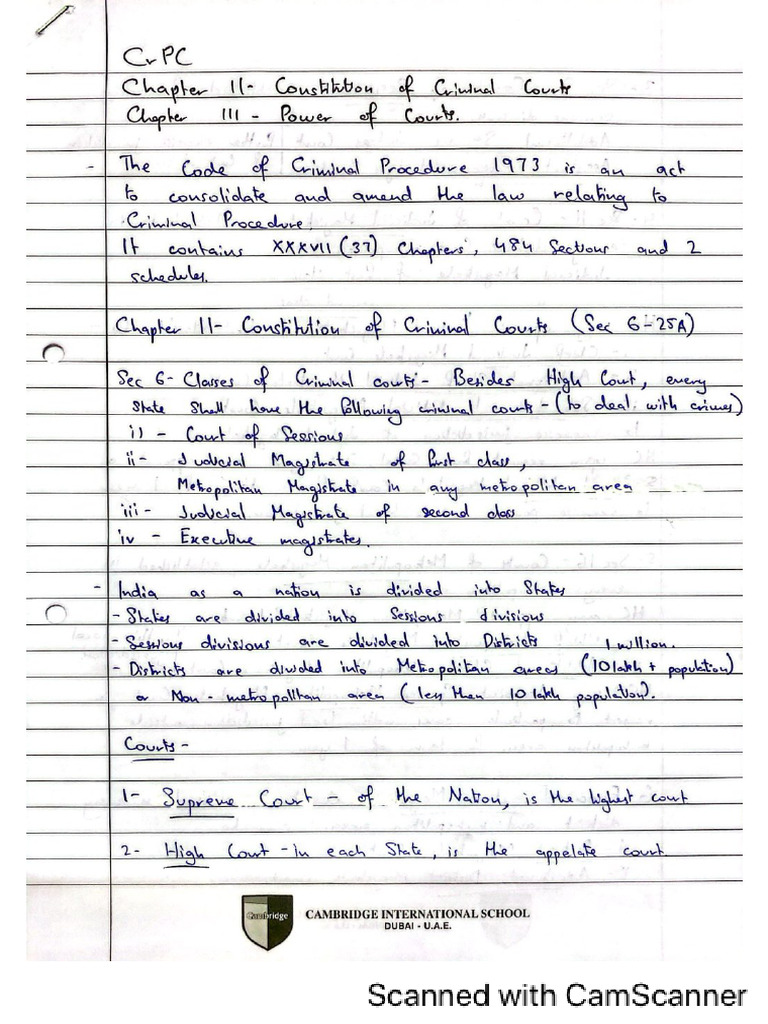 CrPC
Chapter II - Constitution of Criminal Courts
Chapter III - Power of Courts.
- The Code of Criminal Procedure 1973 is an act
to consolidate and amend the law relating to
Criminal Procedure.
It contains XXXVII (37) Chapters, 484 Sections and 2
schedules.
Chapter II - Constitution of Criminal Courts (Sec 6-25A)
Sec 6 - Classes of Criminal courts - Besides High Court, every
State shall have the following criminal courts - (to deal with crimes)
i) - Court of Sessions
ii - Judicial Magistrate of first class,
Metropolitan Magistrate in any metropolitan area
iii - Judicial Magistrate of second class
iv - Executive magistrates.
- India as a nation is divided into States
- States are divided into Sessions divisions
- Sessions divisions are divided into Districts 1 million.
- Districts are divided into Metropolitan areas (10 lakh + population)
or Non-metropolitan area (less then 10 lakh population).
Courts -
1- Supreme Court - of the Nation, is the highest court
2- High Court - in each State, is the appelate court.
Cambridge CAMBRIDGE INTERNATIONAL SCHOOL
DUBAI - U.A.E.
Scanned with CamScanner